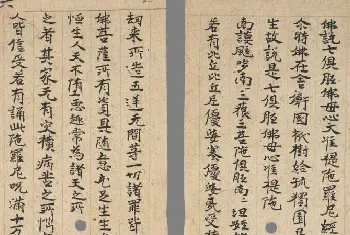 佛說七俱胝佛母心大准提陀羅尼經
尒時佛在舍衛國祇樹給孤獨園
生故說是七俱胝佛母心准提陀
南謨颯哆南三藐三勃陀俱胝南怛姪
若有比丘比丘尼優婆塞優婆夷受持
劫來所造五逆无間等一切諸罪皆
佛菩薩所有資具隨意充足生生
恒生人天不墮惡趣常為諸天之所
之者其家无有灾橫病苦之所惱
人皆信受若有誦此陀羅尼呪滿十万